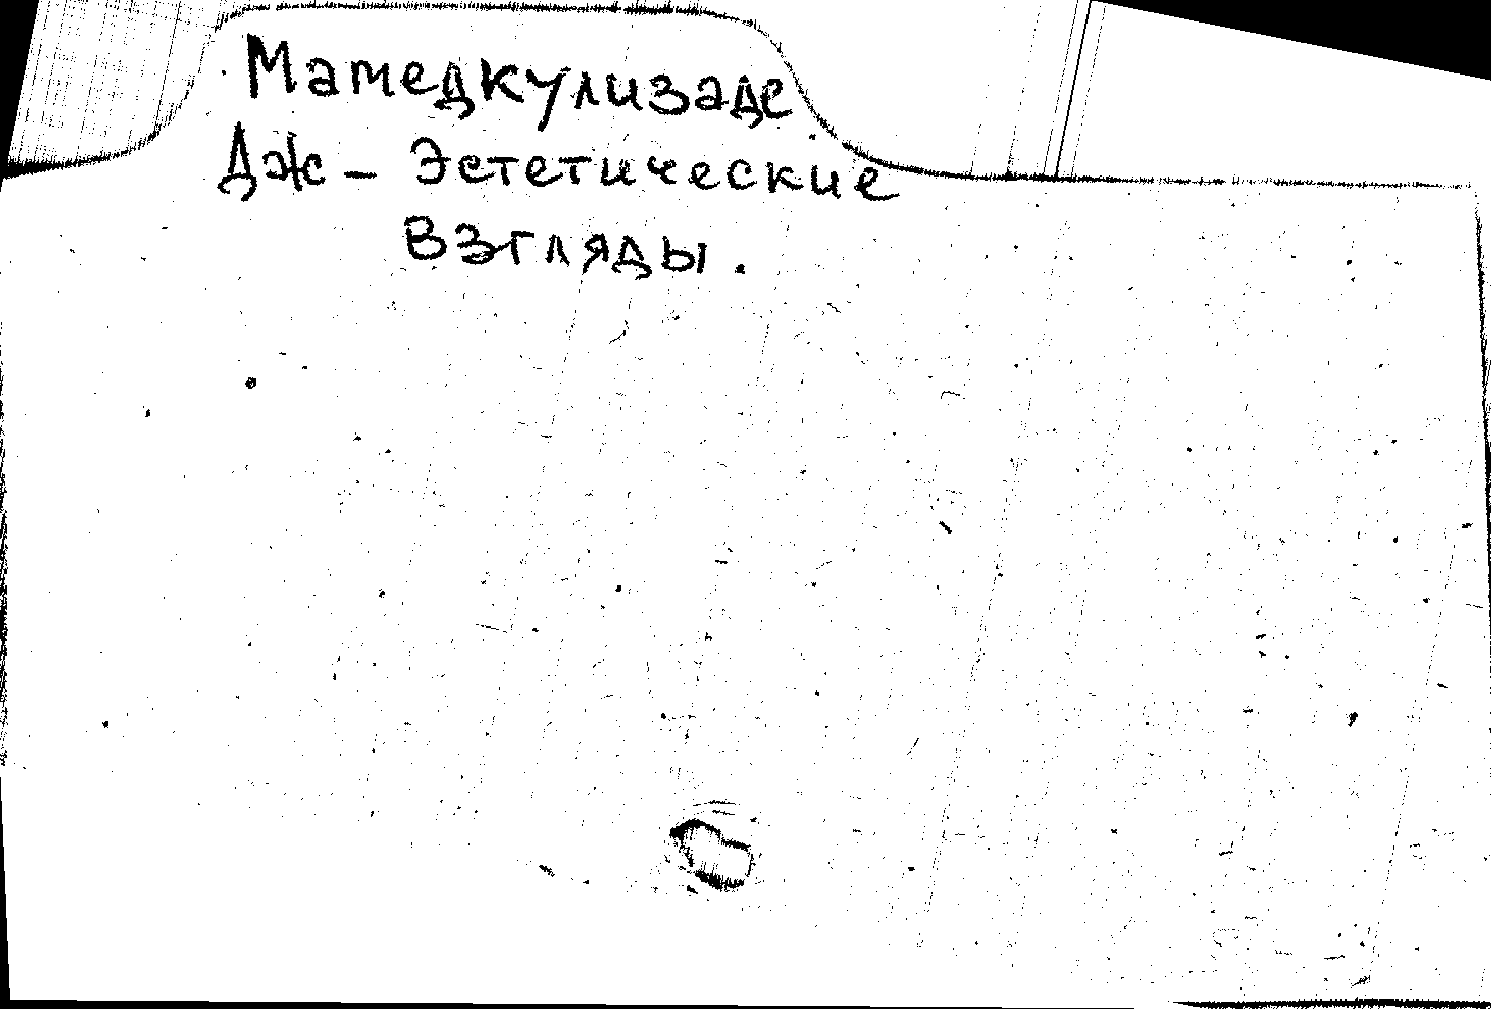 Мамедкулизаде
Дж - Эстетические
взгляды.